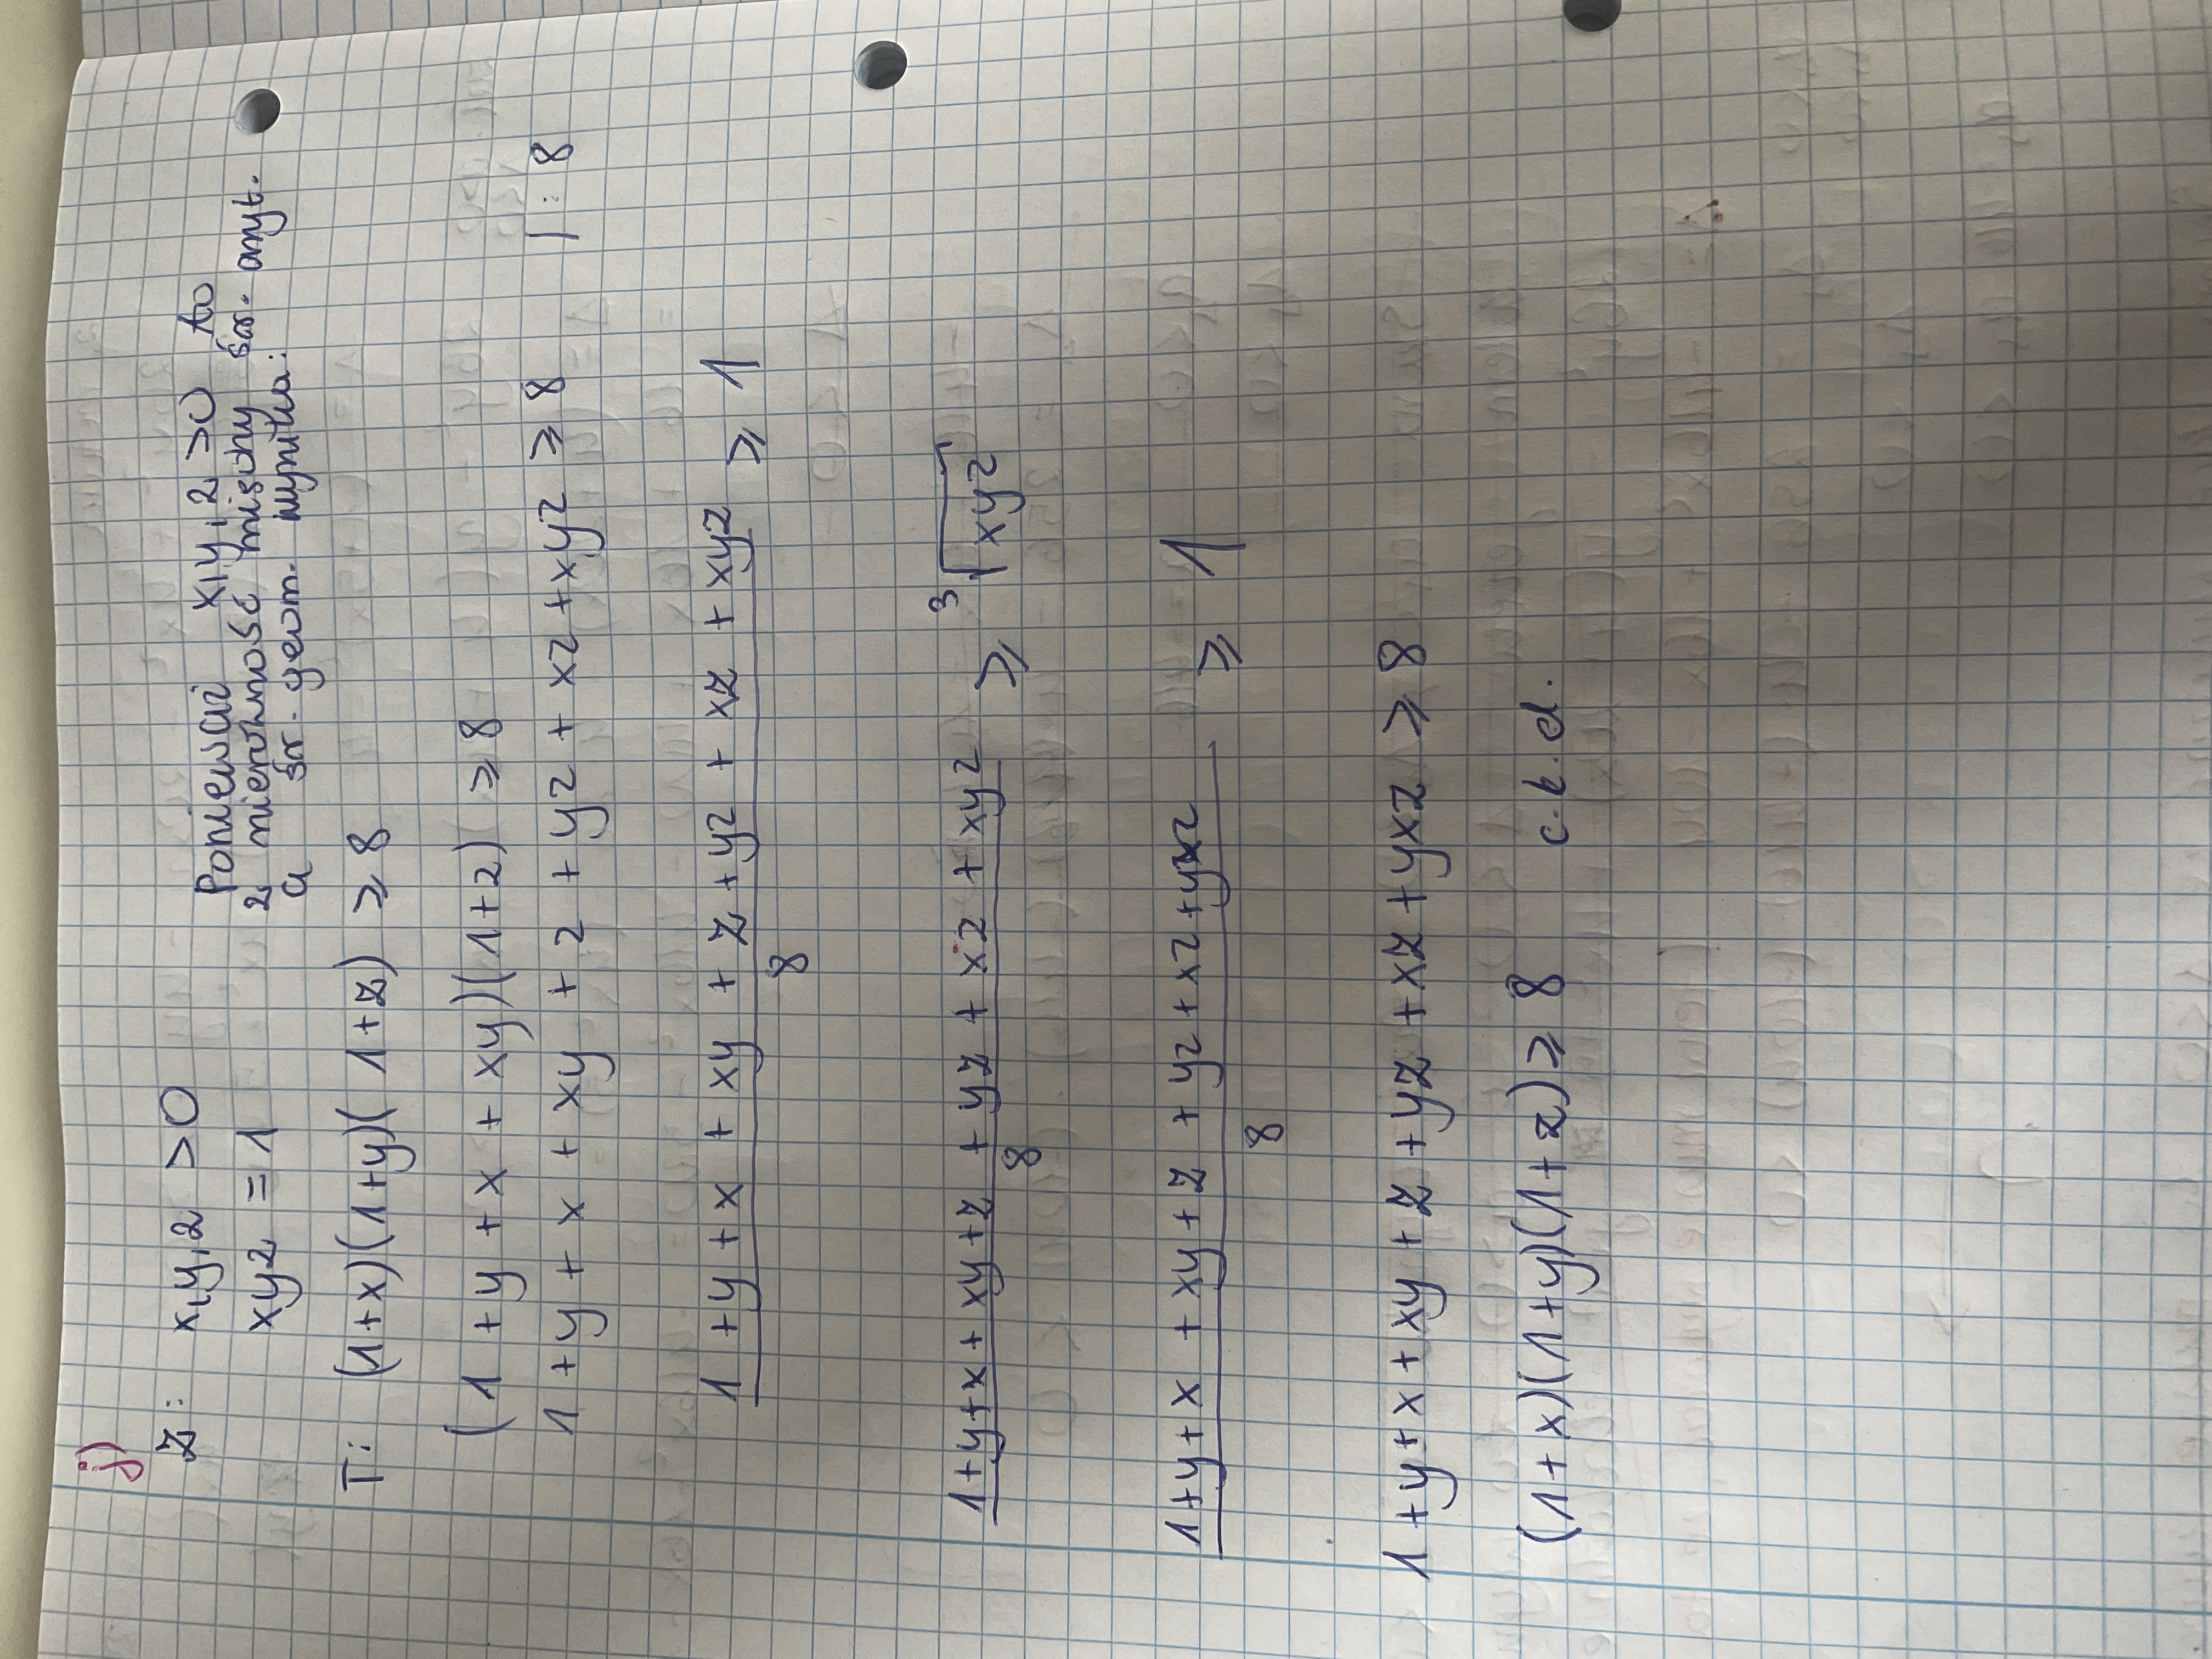 j)
Z: x,y,z >0
xyz = 1
Ponieważ x,y,z >0 to
z nierówność między śr. aryt.
a śr. geom. wynika:
T: (1+x)(1+y)(1+z) ⩾ 8
(1 + y + x + xy)(1+z) ⩾ 8
1 + y + x + xy + z + yz + xz + xyz ⩾ 8 | : 8
\frac{1 + y + x + xy + z + yz + xz + xyz}{8} ⩾ 1
\frac{1+y+x+xy+z+yz+xz+xyz}{8} ⩾ \sqrt[3]{xyz}
\frac{1+y+x+xy+z+yz+xz+yxz}{8} ⩾ 1
1 + y + x + xy + z + yz + xz + yxz ⩾ 8
(1+x)(1+y)(1+z) ⩾ 8 c.k.d.